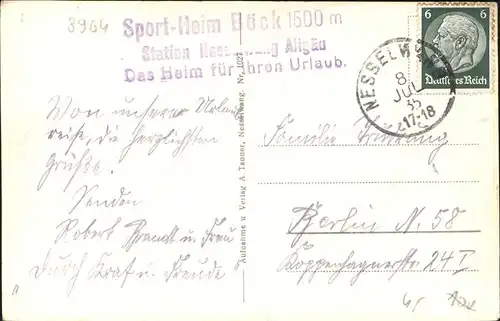 3964
Sport-Heim Böck 1500 m
Station Nesselwang Allgäu
Das Heim für Ihren Urlaub.
6 6
Deutsches Reich
NESSELWANG
8
JUL
35
17-18
Von unserer Urlaubs
reise, die herzlichsten
Grüße.
Senden
Robert Brandt u Frau
Durch Kraft u Freude
Aufnahme u Verlag A Tanner, Nesselwang. Nr. 1027
Familie
Berlin N. 58
Koppenhagnerstr 24 I